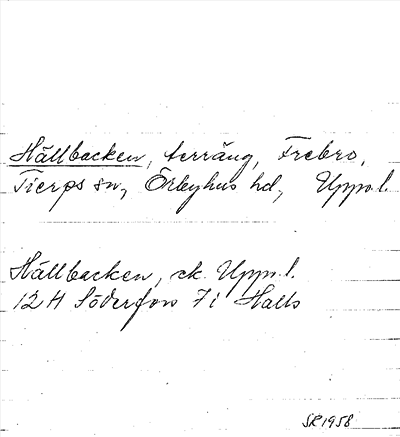 Hällbacken, terräng, Frebro,
Tierps sn, Örbyhus hd, Uppl.
Hällbacken, ek. Uppl.
12H Söderfors 7i Halls
SR 1958